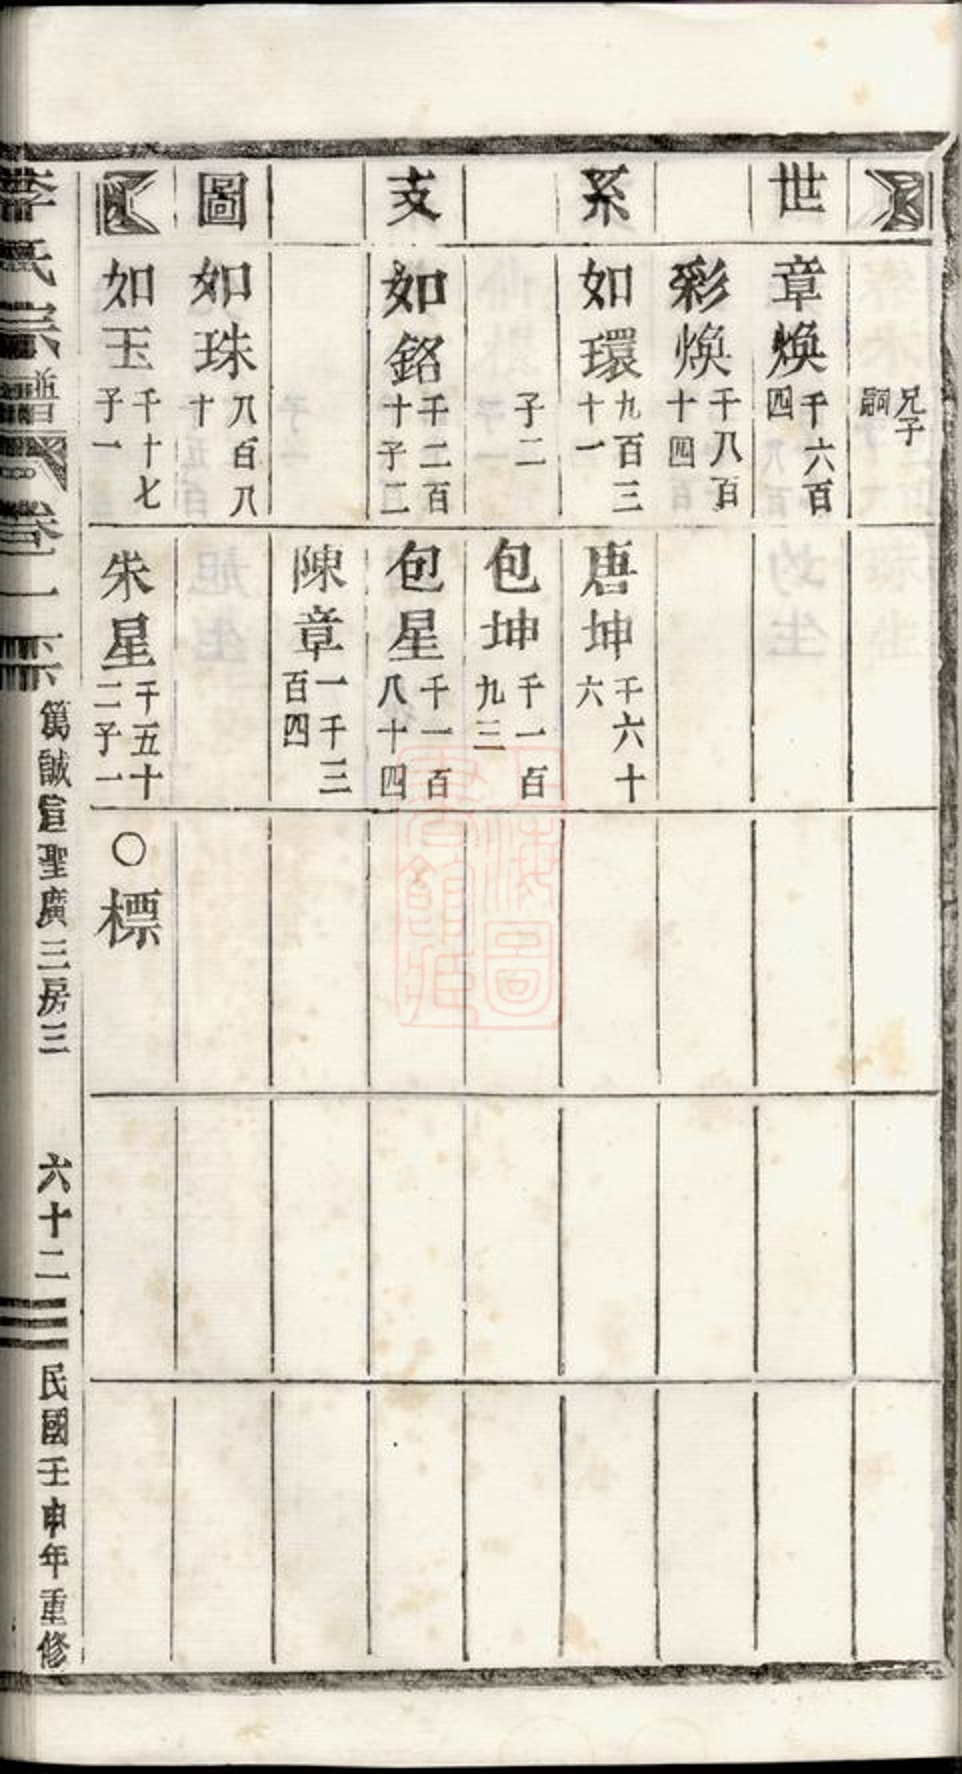 世系支圖
兄子嗣
章煥 千六百四
彩煥 千八百十四
如環 九百三十一
子二
如銘 千二百十子二
如珠 八百八十
如玉 千十七子一
唐坤 千六十六
包坤 千一百九三
包星 千一百八十四
陳章 一千三百四
朱星 千五十二子一
〇標
李氏宗譜
卷一下
篤誠宣聖廣三房三
六十二
民國壬申年重修
上海圖書館藏